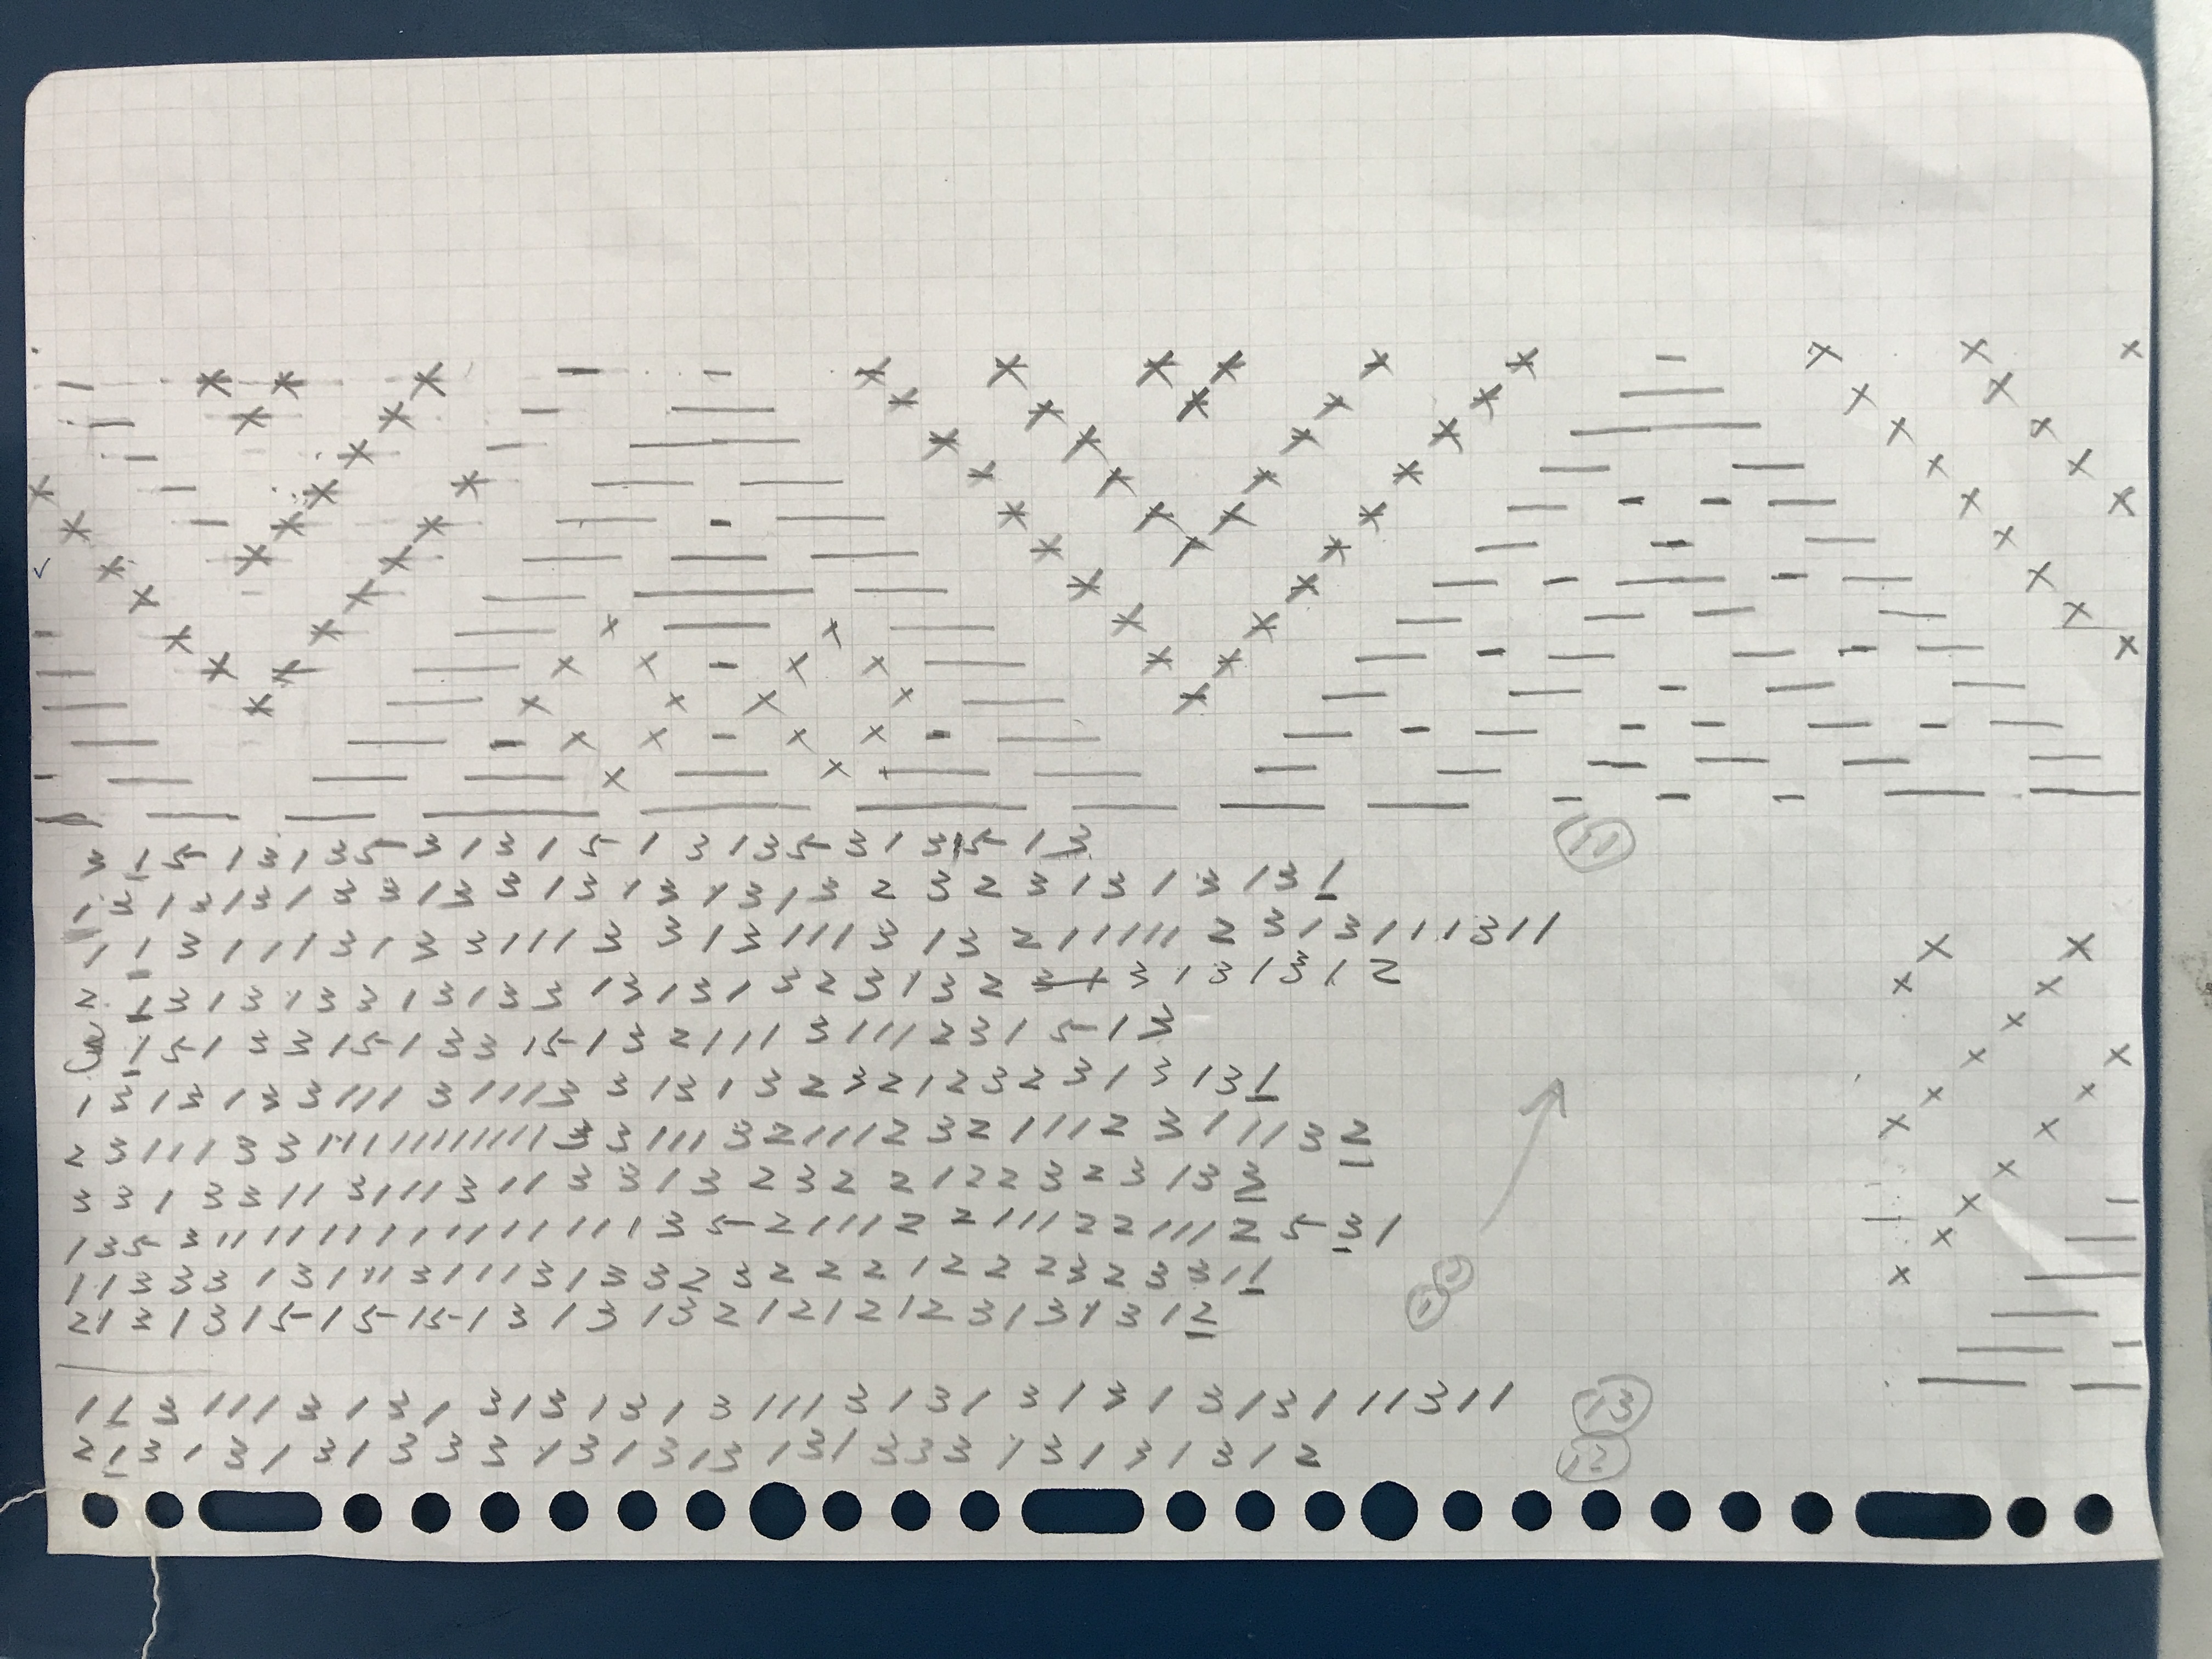 3 1 5 1 3 1 3 5 3 1 3 1 5 1 3 1 3 5 3 1 3 1 5 1 3
1 3 1 3 1 3 1 3 3 1 3 3 1 3 1 3 1 3 1 3 2 3 2 3 1 3 1 3 1 3 1
1 1 3 1 1 1 3 1 3 3 1 1 1 3 3 1 3 1 1 1 3 1 3 2 1 1 1 1 1 2 3 1 3 1 1 1 3 1 1
2 1 3 1 3 1 3 3 1 3 1 3 3 1 3 1 3 1 3 2 3 1 3 2 3 1 3 1 3 1 2
1 5 1 3 3 1 5 1 3 3 1 5 1 3 2 1 1 1 3 1 1 1 2 3 1 5 1 3
1 3 1 3 1 3 3 1 1 1 3 1 1 1 3 3 1 3 1 3 2 3 2 1 2 3 2 3 1 3 1 3 1
2 3 1 1 1 3 3 1 1 1 1 1 1 1 1 1 1 1 1 1 3 3 1 1 1 3 2 1 1 1 2 3 2 1 1 1 2 3 1 1 1 3 2
3 3 1 3 3 1 1 3 1 1 1 3 1 1 3 3 1 3 2 3 2 2 1 2 2 3 2 3 1 3 3
1 3 5 3 1 1 1 1 1 1 1 1 1 1 1 1 1 1 1 1 3 5 2 1 1 1 2 2 1 1 1 2 2 1 1 1 2 5 3 1
1 1 3 3 3 1 3 1 1 1 3 1 1 1 3 1 3 3 2 3 2 2 2 1 2 2 2 3 2 3 3 1 1
2 1 3 1 3 1 5 1 5 1 5 1 3 1 3 1 3 2 1 2 1 2 1 2 3 1 3 1 3 1 2
1 1 3 1 1 1 3 1 3 1 3 1 3 1 3 1 3 1 1 1 3 1 3 1 3 1 3 1 3 1 3 1 1 1 3 1 1 13
2 1 3 1 3 1 3 1 3 3 3 1 3 1 3 1 3 1 3 1 3 3 3 1 3 1 3 1 3 1 2 12